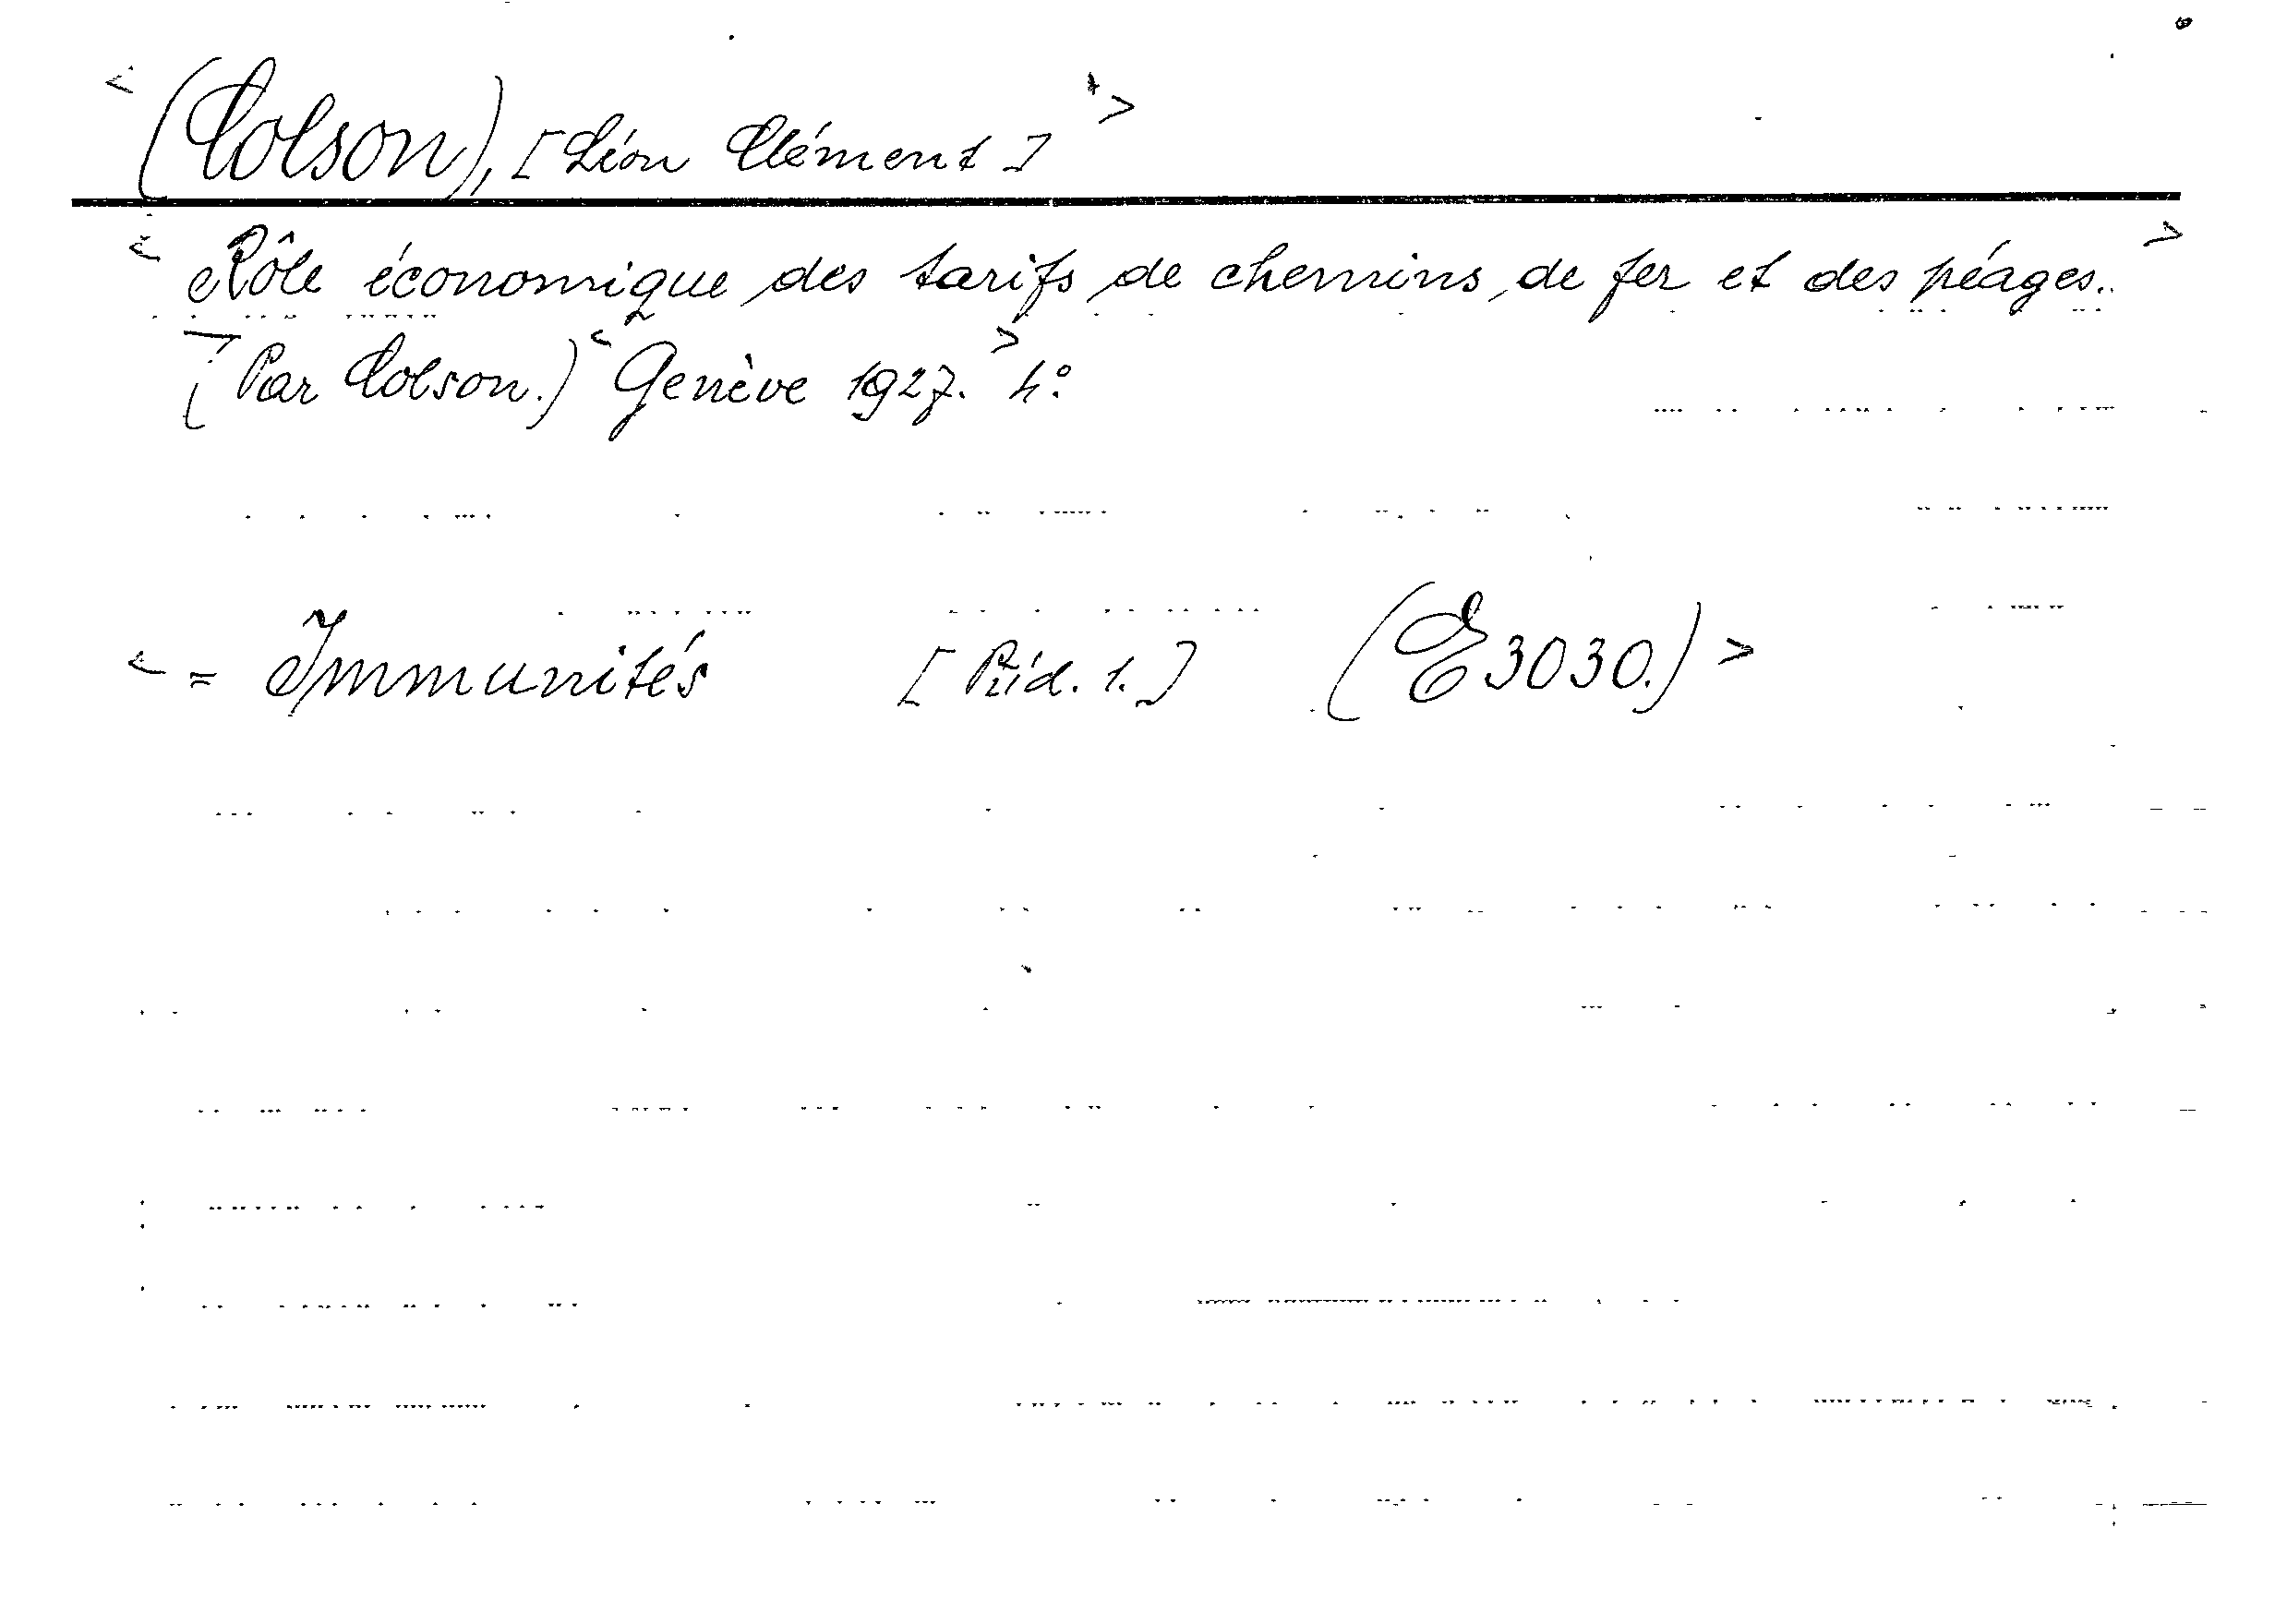 < (Colson), [Léon Clément] >
< Rôle économique des tarifs de chemins de fer et des péages. >
(Par Colson.) < Genève 1927. > 4°.
< = Immunités [ 1.] (E 3030.) >